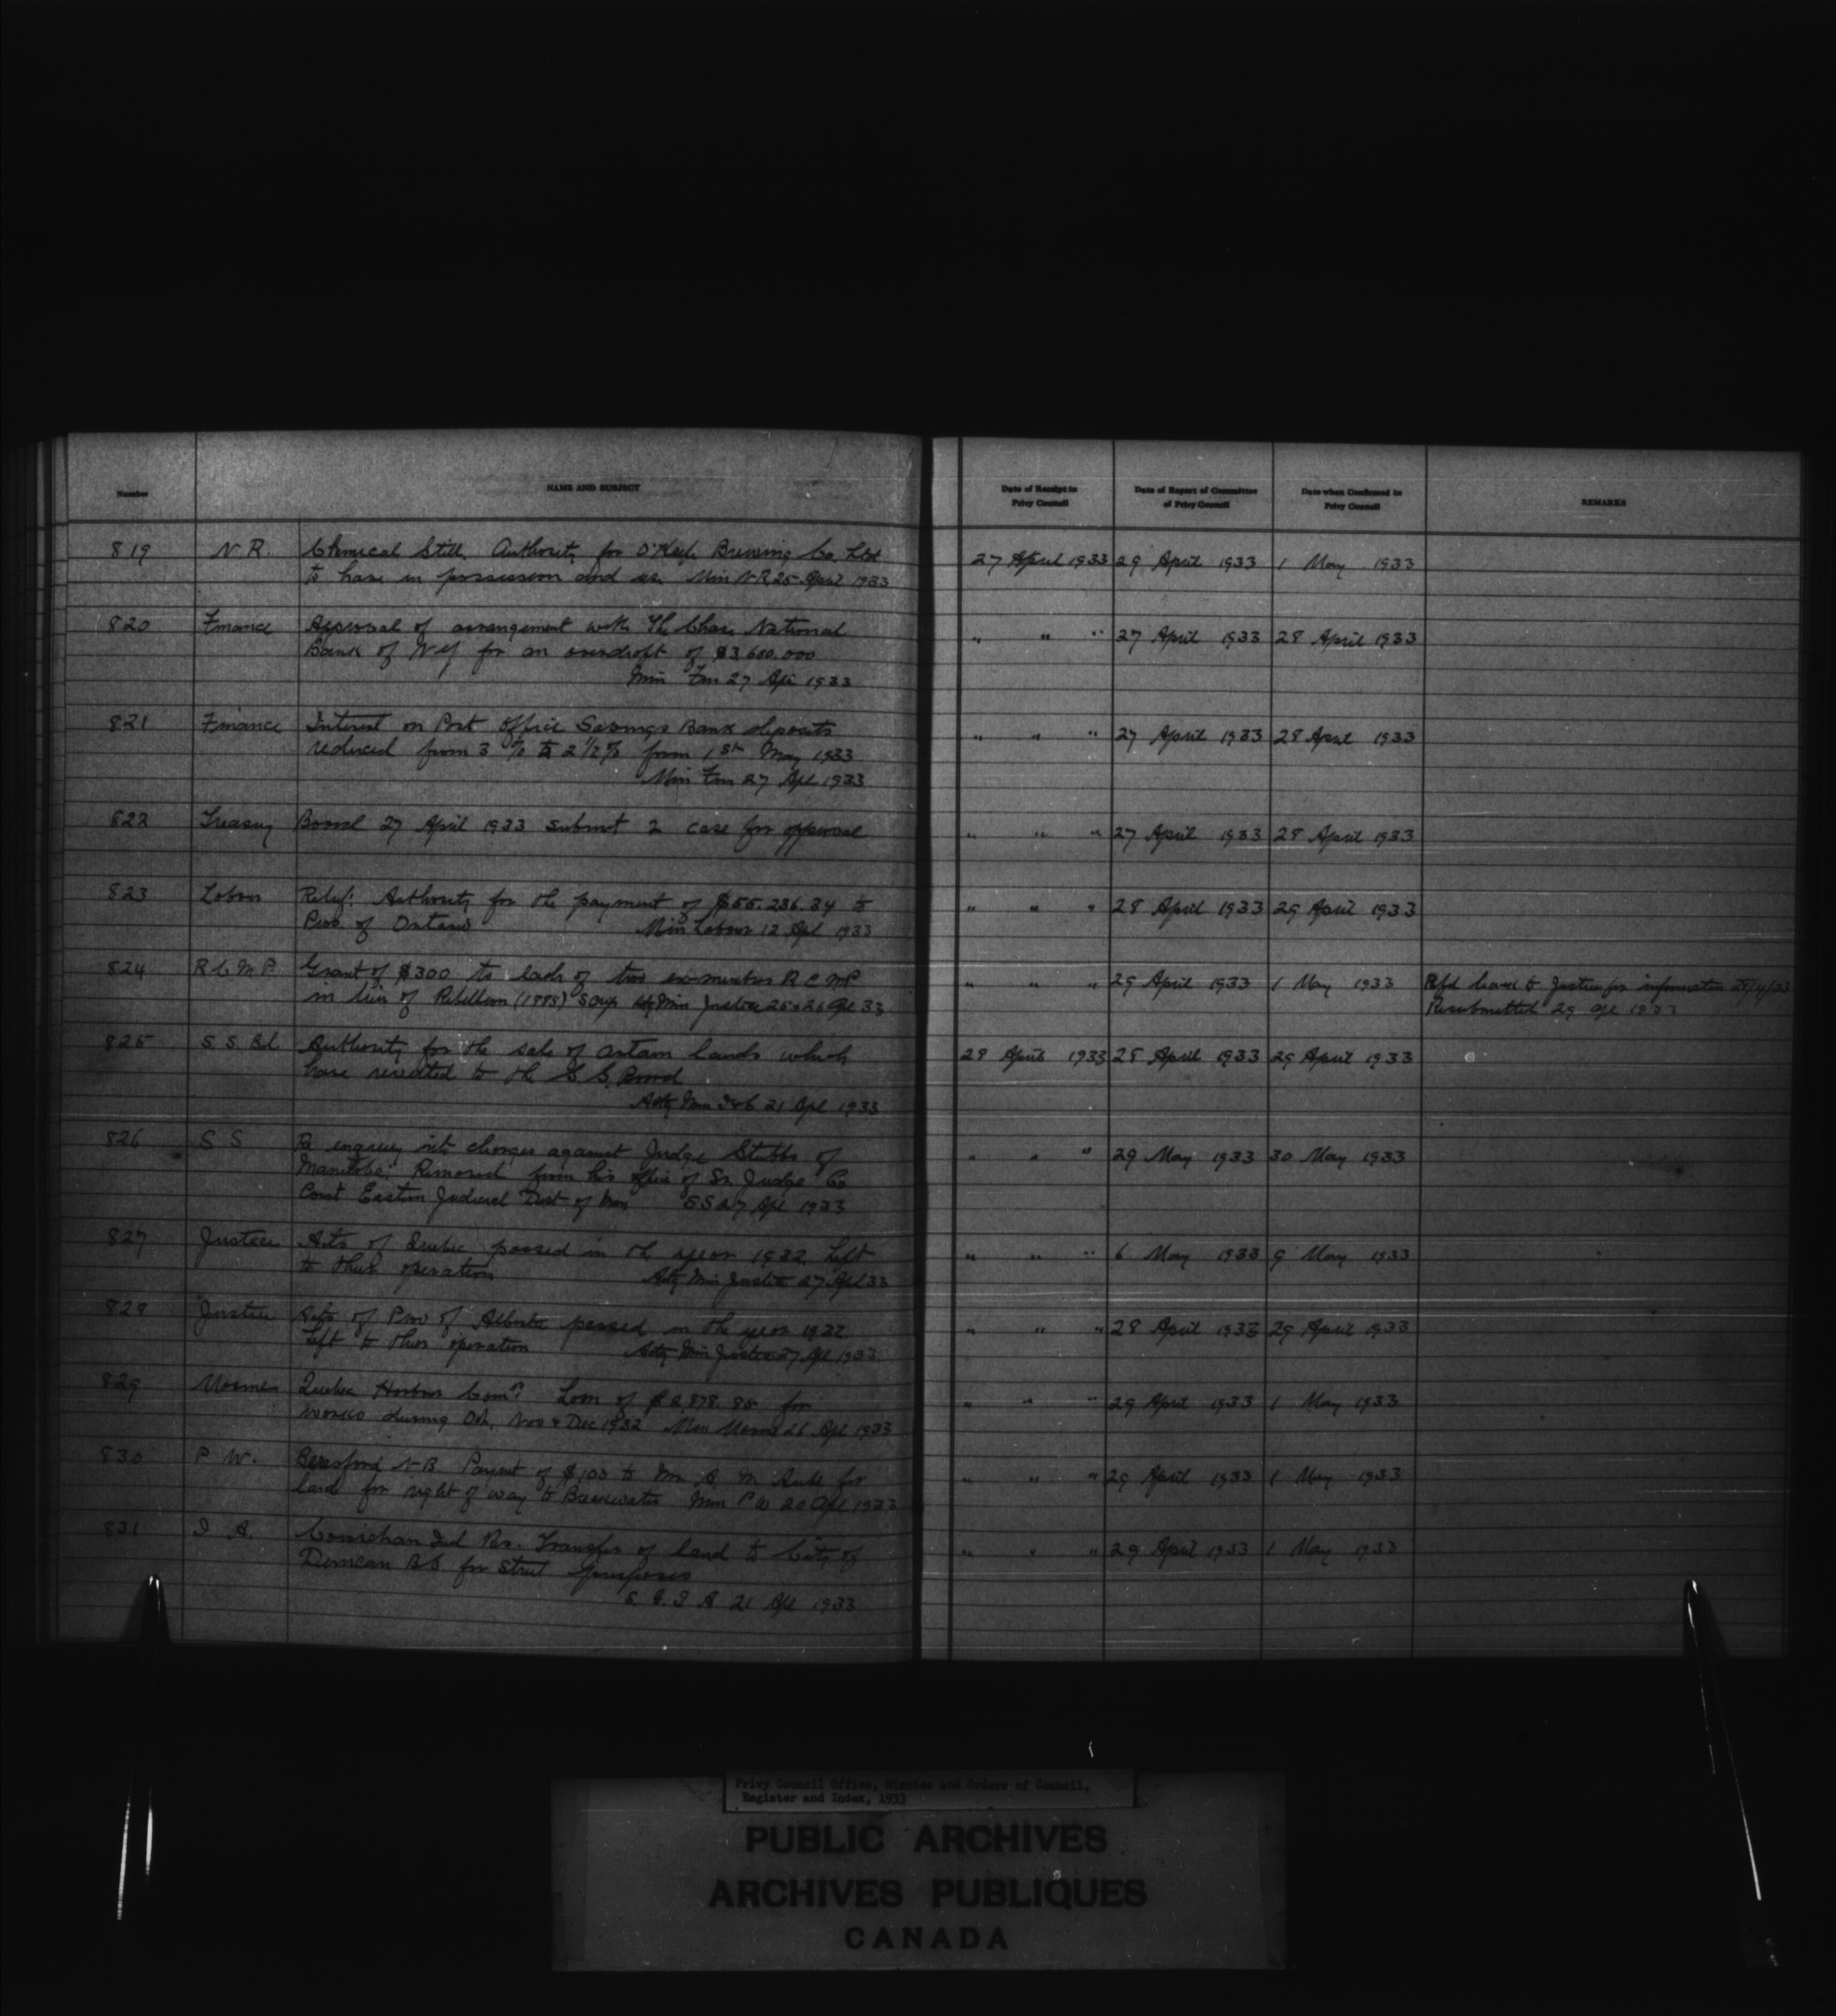 Number
NAME AND SUBJECT
Date of Receipt in
Privy Council
Date of Report of Committee
of Privy Council
Date when Confirmed in
Privy Council
REMARKS
819 N R. Chemical Still. Authority for O'Keefe Brewing Co. Ltd 27 April 1933 29 April 1933 1 May 1933
to have in possession and use Min N R 25 April 1933
820 Finance Approval of arrangement with The Chase National " " " 27 April 1933 28 April 1933
Bank of N Y for an overdraft of $3 600.000
Min Fin 27 Apl 1933
821 Finance Interest on Post Office Savings Bank deposits " " " 27 April 1933 28 April 1933
reduced from 3 % to 2 1/2 % from 1st May 1933
Min Fin 27 Apl 1933
822 Treasury Board 27 April 1933 submit 2 case for approval " " " 27 April 1933 28 April 1933
823 Labour Relief: Authority for the payment of $55.236.34 to " " " 28 April 1933 29 April 1933
Prov. of Ontario Min Labour 12 Apl 1933
824 R C M P Grant of $300 to each of two ex-members R C M P " " " 29 April 1933 1 May 1933 Refd back to Justice for information
in lieu of Rebellion (1885) Scrip Actg Min Justice 25 & 26 Apl 33 Resubmitted 29 Apl 1933
825 S. S. Bd. Authority for the sale of certain lands which 28 April 1933 28 April 1933 29 April 1933
have reverted to the S S. Board
Actg Min I & C 21 Apl 1933
826 S S enquiry into charges against Judge Stubbs of " " " 29 May 1933 30 May 1933
Manitoba: Removed from his office of Sr. Judge Co
Court Eastern Judicial Dist of Man S S 27 Apl 1933
827 Justice Acts of Quebec passed in the year 1932 left " " " 6 May 1933 9 May 1933
to their operation Actg Min Justice 27 Apl 33
828 Justice Acts of Prov of Alberta passed in the year 1932. " " " 28 April 1933 29 April 1933
Left to their operation Actg Min Justice 27 Apl 1933
829 Marine Quebec Harbour Comn: Loan of for " " " 29 April 1933 1 May 1933
works during Oct, Nov & Dec 1932 Min Marine 26 Apl 1933
830 P W. Beresford N B Paymt of $100 to Mr A. M. for " " " 29 April 1933 1 May 1933
land for right of way to Breakwater Min P W 20 Apl 1933
831 I A. Cowichan Ind Res. Transfer of land to City of " " " 29 April 1933 1 May 1933
Duncan B C for street purposes
S. G. I A. 21 Apl 1933
Privy Council Office, Minutes and Orders of Council,
Register and Index, 1933
PUBLIC ARCHIVES
ARCHIVES PUBLIQUES
CANADA